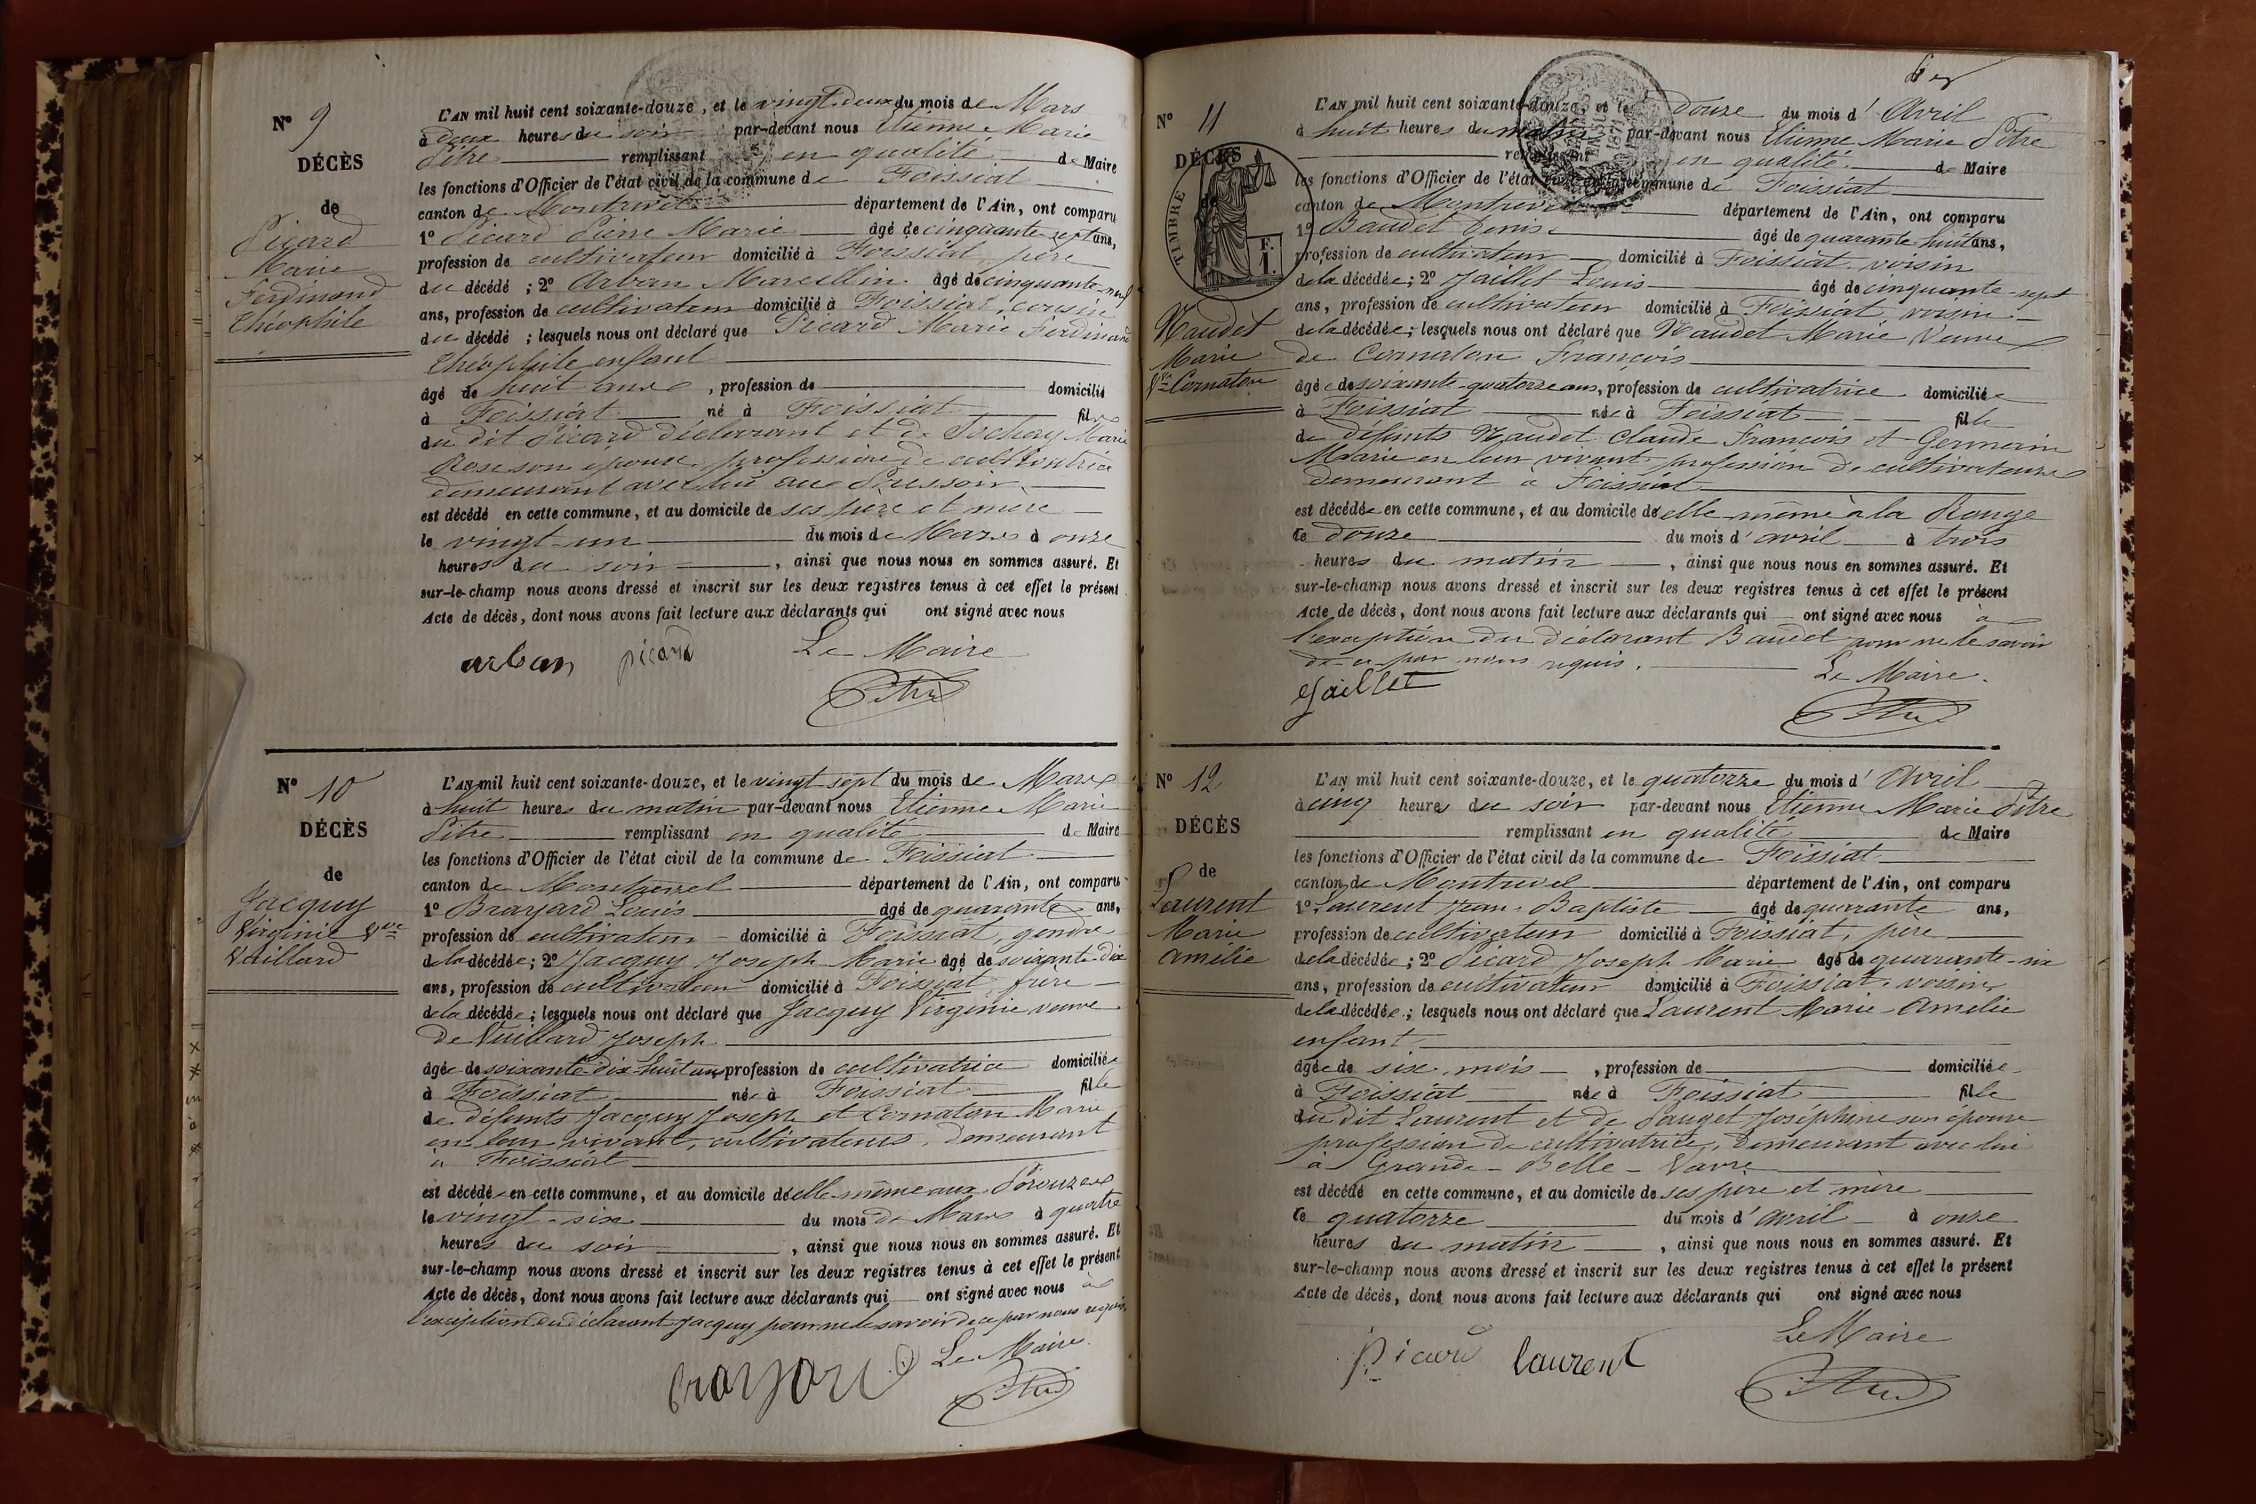 N° 9
DÉCÈS
de
Picard
Marie
Ferdinand
Théophile
L'AN mil huit cent soixante-douze, et le vingt deux du mois de Mars
à deux heures du soir par-devant nous Etienne Marie
Pitre remplissant en qualité de Maire
les fonctions d'Officier de l'état civil de la commune de Foissiat
canton de Montrevel département de l'Ain, ont comparu
1° Picard Pierre Marie âgé de cinquante-sept ans,
profession de cultivateur domicilié à Foissiat, père
du décédé ; 2° Arban Marcellin âgé de cinquante-neuf
ans, profession de cultivateur domicilié à Foissiat, cousin
du décédé ; lesquels nous ont déclaré que Picard Marie Ferdinand
Théophile enfant
âgé de huit ans, profession de domicilié
à Foissiat né à Foissiat fils
du dit Picard déclarant et de Sochay Marie
Rose son épouse, profession de cultivatrice
demeurant avec lui au Pressoir
est décédé en cette commune, et au domicile de ses père et mère
le vingt-un du mois de Mars à onze
heures du soir, ainsi que nous nous en sommes assuré. Et
sur-le-champ nous avons dressé et inscrit sur les deux registres tenus à cet effet le présent
Acte de décès, dont nous avons fait lecture aux déclarants qui ont signé avec nous
Le Maire
arban picard
Pitre
N° 10
DÉCÈS
de
Jacquy
Virginie Vve
Vuillard
L'AN mil huit cent soixante-douze, et le vingt sept du mois de Mars
à huit heures du matin par-devant nous Etienne Marie
Pitre remplissant en qualité de Maire
les fonctions d'Officier de l'état civil de la commune de Foissiat
canton de Montrevel département de l'Ain, ont comparu
1° Brayard Louis âgé de quarante ans,
profession de cultivateur domicilié à Foissiat, gendre
de la décédée ; 2° Jacquy Joseph Marie âgé de soixante-dix
ans, profession de cultivateur domicilié à Foissiat, frère
de la décédée ; lesquels nous ont déclaré que Jacquy Virginie veuve
de Vuillard Joseph
âgée de soixante dix-huit ans profession de cultivatrice domiciliée
à Foissiat née à Foissiat fille
de défunts Jacquy Joseph et Cornaton Marie
en leur vivant, cultivateurs, demeurant
à Foissiat
est décédée en cette commune, et au domicile d'elle-même aux Pérouzes
le vingt-six du mois de Mars à quatre
heures du soir, ainsi que nous nous en sommes assuré. Et
sur-le-champ nous avons dressé et inscrit sur les deux registres tenus à cet effet le présent
Acte de décès, dont nous avons fait lecture aux déclarants qui ont signé avec nous à
l'exception du déclarant Jacquy pour ne le savoir de ce par nous requis.
Le Maire
Brayard
Pitre
N° 11
DÉCÈS
de
TIMBRE
F.
1.
Naudet
Marie
Vve Cornaton
L'AN mil huit cent soixante-douze, et le douze du mois d'Avril
à huit heures du matin par-devant nous Etienne Marie Pitre
remplissant en qualité de Maire
les fonctions d'Officier de l'état civil de la commune de Foissiat
canton de Montrevel département de l'Ain, ont comparu
1° Baudet Denis âgé de quarante-huit ans,
profession de cultivateur domicilié à Foissiat voisin
de la décédée ; 2° Jaillet Louis âgé de cinquante-sept
ans, profession de cultivateur domicilié à Foissiat voisin
de la décédée ; lesquels nous ont déclaré que Naudet Marie Veuve
de Cornaton François
âgée de soixante-quatorze ans, profession de cultivatrice domiciliée
à Foissiat née à Foissiat fille
de défunts Naudet Claude François et Germain
Marie en leur vivant profession de cultivateurs
demeurant à Foissiat
est décédée en cette commune, et au domicile d'elle-même à la Rouge
le douze du mois d'avril à trois
heures du matin, ainsi que nous nous en sommes assuré. Et
sur-le-champ nous avons dressé et inscrit sur les deux registres tenus à cet effet le présent
Acte de décès, dont nous avons fait lecture aux déclarants qui ont signé avec nous à
l'exception du déclarant Baudet pour ne le savoir
de ce par nous requis.
Le Maire.
Jaillet
Pitre
N° 12
DÉCÈS
de
Laurent
Marie
Amélie
L'AN mil huit cent soixante-douze, et le quatorze du mois d'Avril
à cinq heures du soir par-devant nous Etienne Marie Pitre
remplissant en qualité de Maire
les fonctions d'Officier de l'état civil de la commune de Foissiat
canton de Montrevel département de l'Ain, ont comparu
1° Laurent Jean-Baptiste âgé de quarante ans,
profession de cultivateur domicilié à Foissiat, père
de la décédée ; 2° Picard Joseph Marie âgé de quarante-six
ans, profession de cultivateur domicilié à Foissiat, voisin
de la décédée ; lesquels nous ont déclaré que Laurent Marie-Amélie
enfant
âgée de six mois, profession de domiciliée
à Foissiat née à Foissiat fille
du dit Laurent et de Pauget Joséphine son épouse
profession de cultivatrice, demeurant avec lui
à Grande-Belle-Vavre
est décédé en cette commune, et au domicile de ses père et mère
le quatorze du mois d'avril à onze
heures du matin, ainsi que nous nous en sommes assuré. Et
sur-le-champ nous avons dressé et inscrit sur les deux registres tenus à cet effet le présent
Acte de décès, dont nous avons fait lecture aux déclarants qui ont signé avec nous
Le Maire
Picard laurent
Pitre